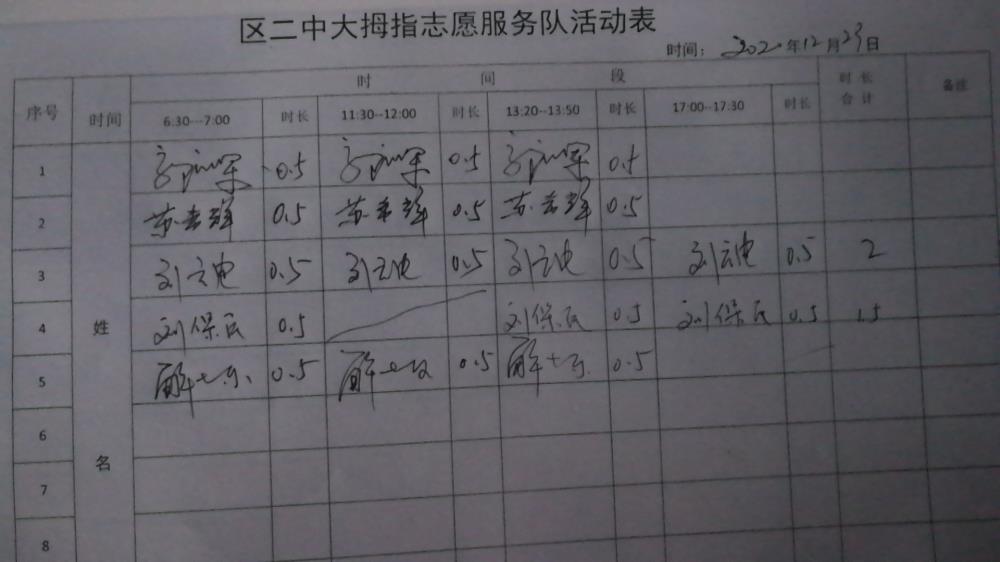 区二中大拇指志愿服务队活动表
时间： 年12月23日
序号 时间 时 间 段 时长合计 备注
6:30---7:00 时长 11:30--12:00 时长 13:20--13:50 时长 17:00--17:30 时长
姓名
1 0.5 0.5 0.5
2 0.5 0.5 0.5
3 刘云电 0.5 刘云电 0.5 刘云电 0.5 刘云电 0.5 2
4 刘保民 0.5 刘保民 0.5 刘保民 0.5 1.5
5 0.5 0.5 0.5
6
7
8